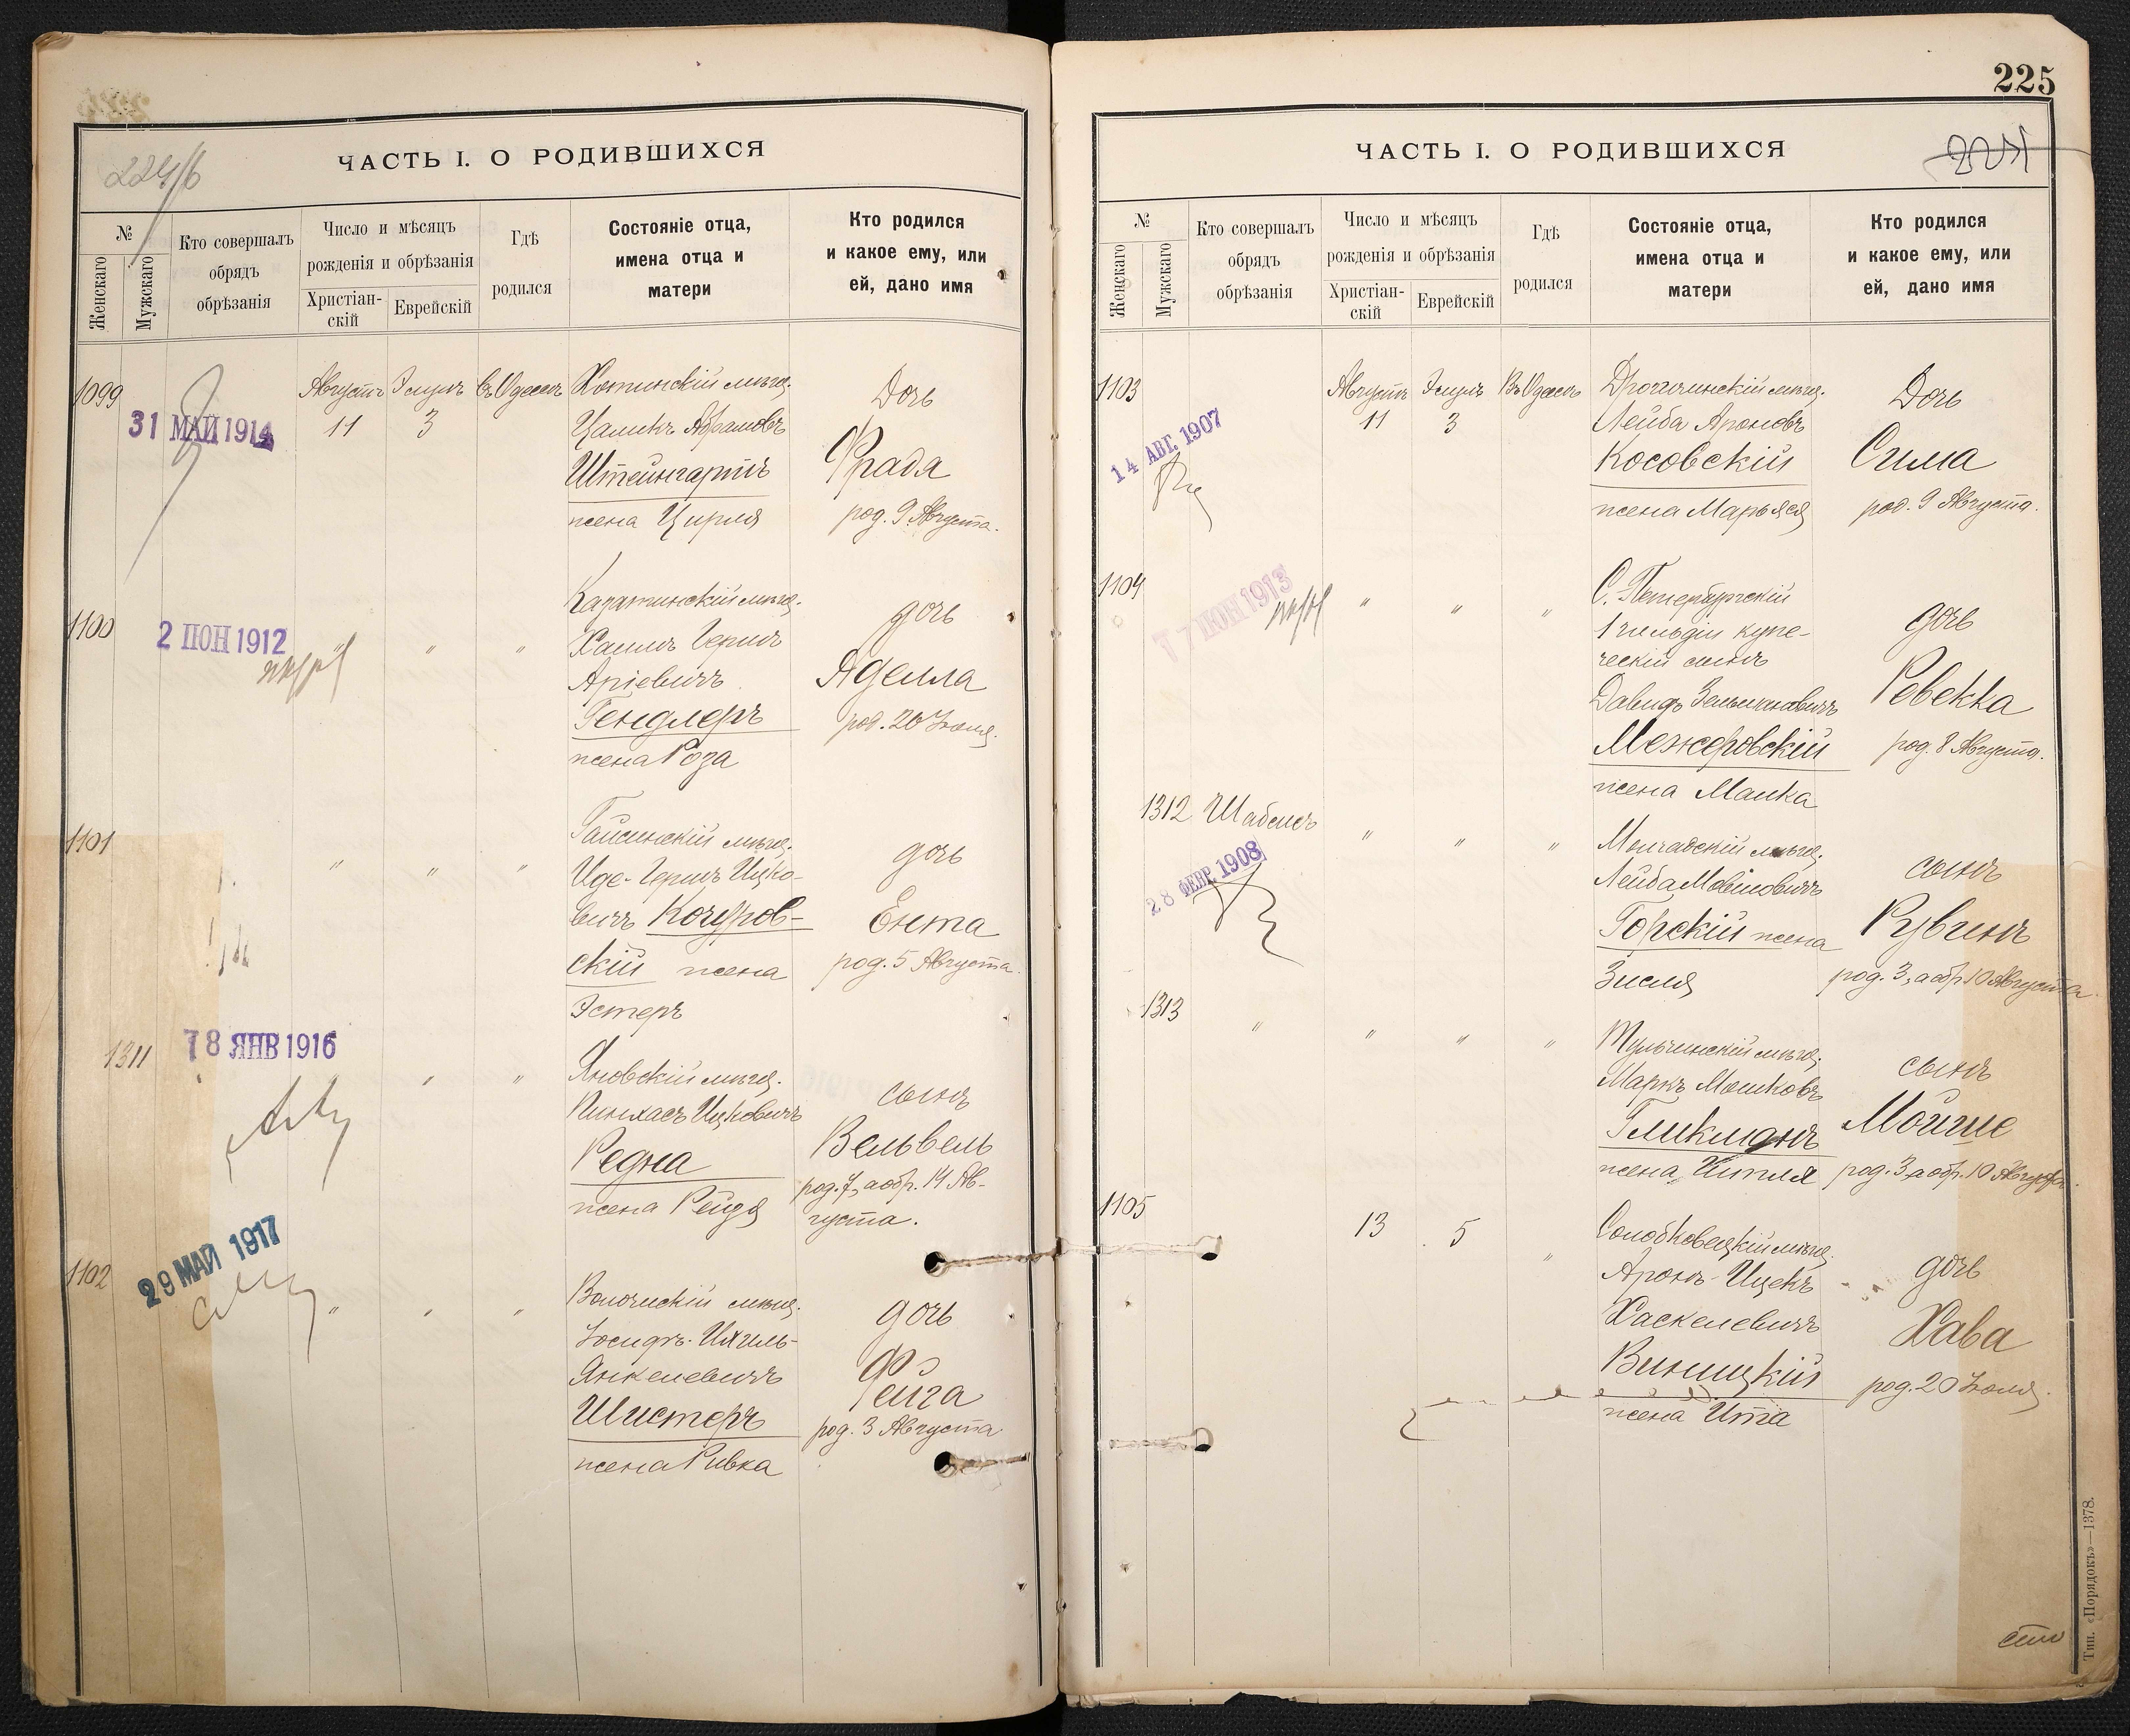 224/б
ЧАСТЬ I. О РОДИВШИХСЯ
№
Женскаго
Мужскаго
Кто совершалъ
обрядъ
обрѣзанія
Число и мѣсяцъ
рожденія и обрѣзанія
Христіан-
скій
Еврейскій
Гдѣ
родился
Состояніе отца,
имена отца и
матери
Кто родился
и какое ему, или
ей, дано имя
1099
31 МАЙ 1914
Августъ
11
Элулъ
3
Въ Одессѣ
Хотинскій мѣщ.
Цаликъ Абрамовъ
Штейнгартъ
жена Цирля
Дочь
Фрада
род. 9 Августа.
1100
2 ІЮН 1912
" " "
Казатинскій мѣщ.
Хаимъ Гершъ
Аріевичъ
Гендлеръ
жена Роза
дочь
Аделла
род. 20 Іюля.
1101
" " "
Гайсинскій мѣщ.
Иде-Гершъ Ицко-
вичъ Кочуров-
скій жена
Эстеръ
дочь
Ента
род. 5 Августа.
1311
18 ЯНВ 1916
" "
Яновскій мѣщ.
Пинхасъ Ицковичъ
Редна
жена Рейдя
сынъ
Вельвель
род. 7, а обр. 14 Ав-
густа.
1102
29 МАЙ 1917
" " "
Волочискій мѣщ.
Іосифъ-Ихиль-
Янкелевичъ
Шистеръ
жена Ривка
дочь
Фейга
род. 3 Августа
225
ЧАСТЬ I. О РОДИВШИХСЯ
№
Женскаго
Мужскаго
Кто совершалъ
обрядъ
обрѣзанія
Число и мѣсяцъ
рожденія и обрѣзанія
Христіан-
скій
Еврейскій
Гдѣ
родился
Состояніе отца,
имена отца и
матери
Кто родился
и какое ему, или
ей, дано имя
1103
14 АВГ. 1907
Августъ
11
Элулъ
3
Въ Одессѣ
Дрогичинскій мѣщ.
Лейба Ароновъ
Косовскій
жена Марьяся
Дочь
Сима
род. 9 Августа.
1104
17 ІЮН 1913
" " "
С. Петербургскій
1 гильдіи купе-
ческій сынъ
Давидъ Зельмановичъ
Межеровскій
жена Малка
дочь
Ревекка
род. 8 Августа.
1312
Шабсисъ
28 ФЕВР. 1908
" " "
Молчадскій мѣщ.
Лейба Мовшовичъ
Горскій жена
Зисля
сынъ
Рувинъ
род. 3, а обр. 10 Августа
1313
" " " "
Тульчинскій мѣщ.
Маркъ Мошковъ
Гликманъ
жена Китля
сынъ
Мойше
род. 3, а обр. 10 Августа.
1105
13
5
"
Солобковецкій мѣщ.
Аронъ-Ицекъ
Хаскелевичъ
Виницкій
жена Ита
дочь
Хава
род. 20 Іюля.
Тип. «Порядокъ»—1378.